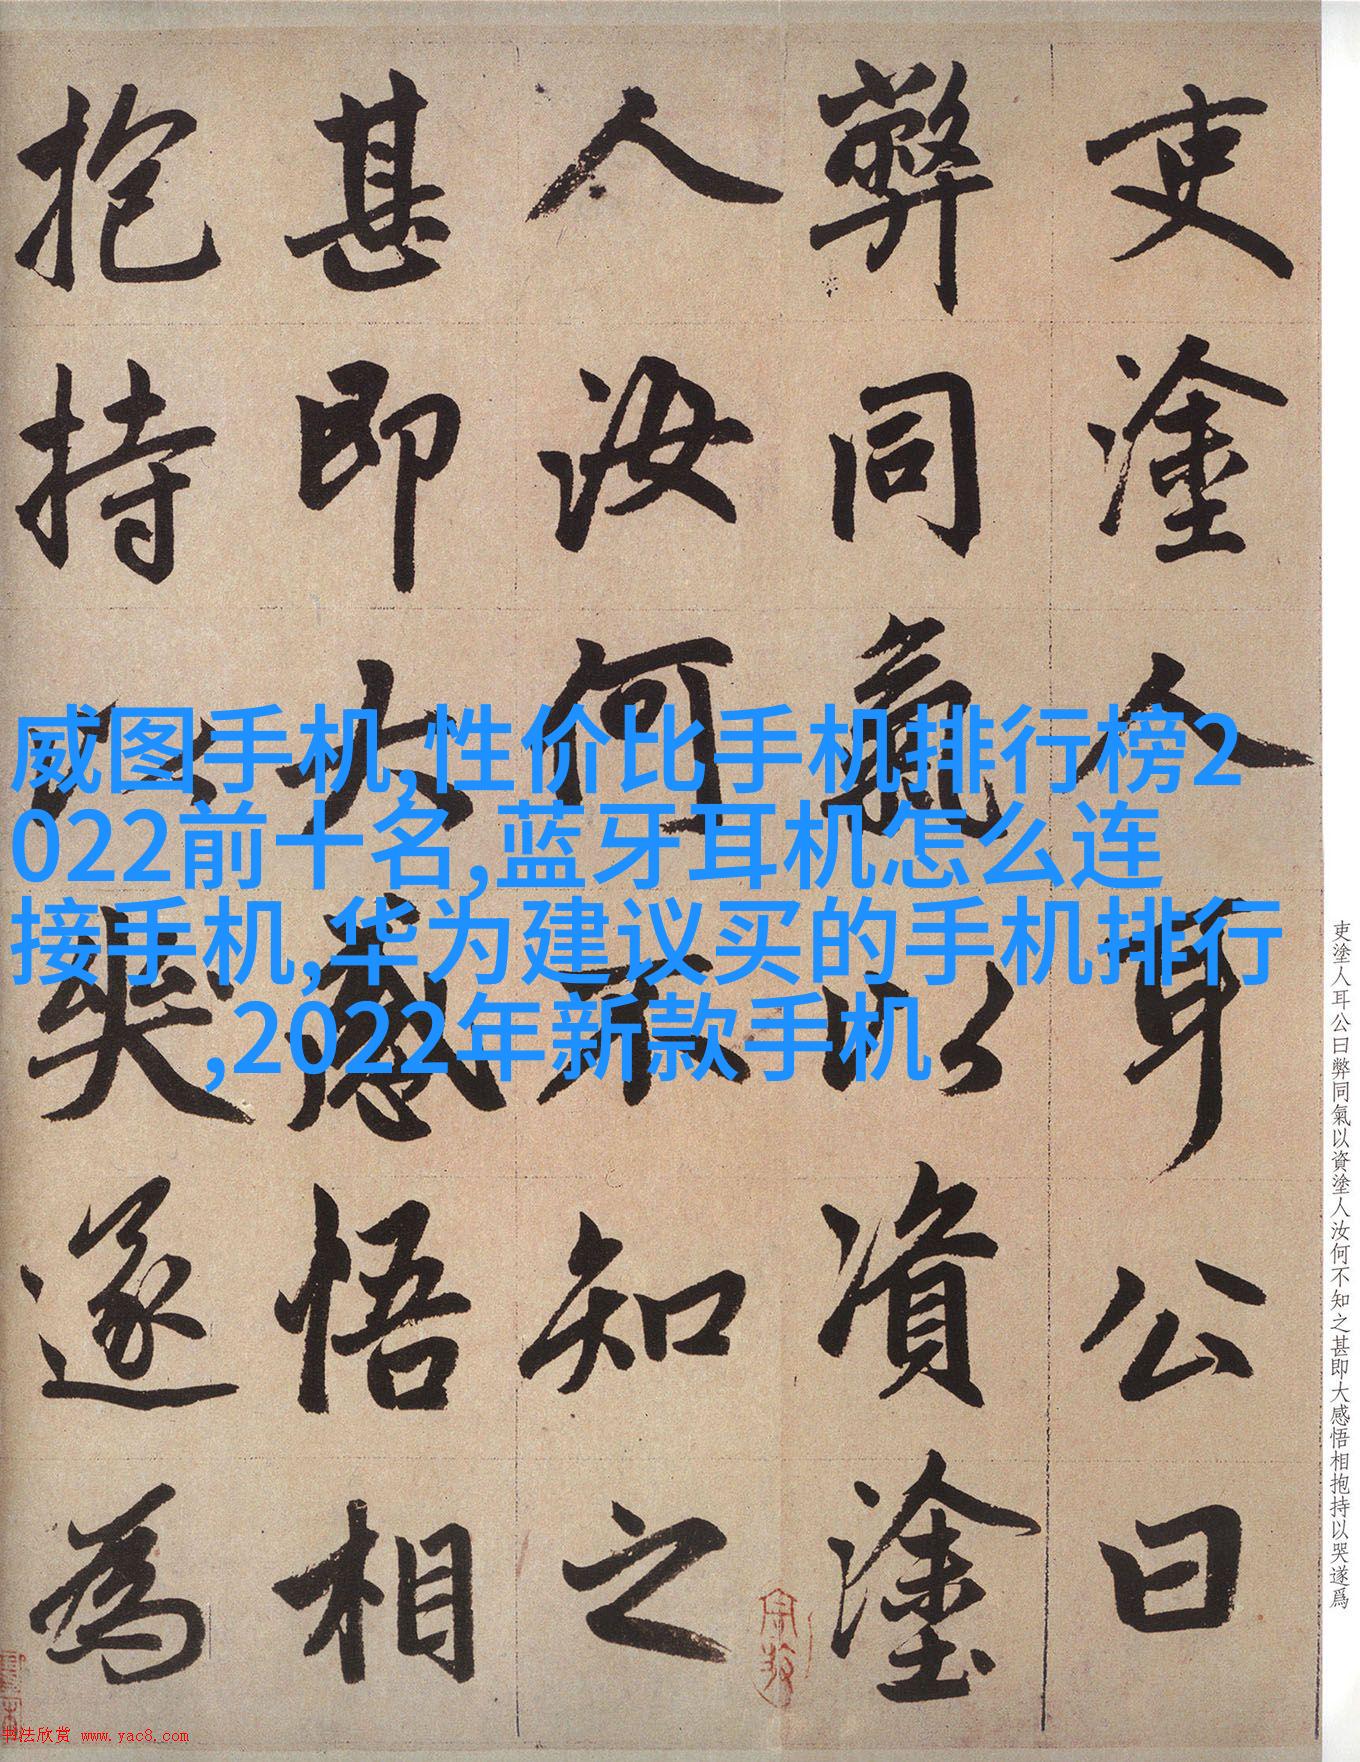 吏塗人耳公曰
弊同氣以資塗
人汝何不知之
甚即大感悟相
抱持以哭遂為
威图手机,性价比手机排行榜2
022前十名,蓝牙耳机怎么连
接手机,华为建议买的手机排行
,2022年新款手机
吏塗人耳公曰弊同氣以資塗人汝何不知之甚即大感悟相抱持以哭遂爲
书法欣赏 www.yac8.com